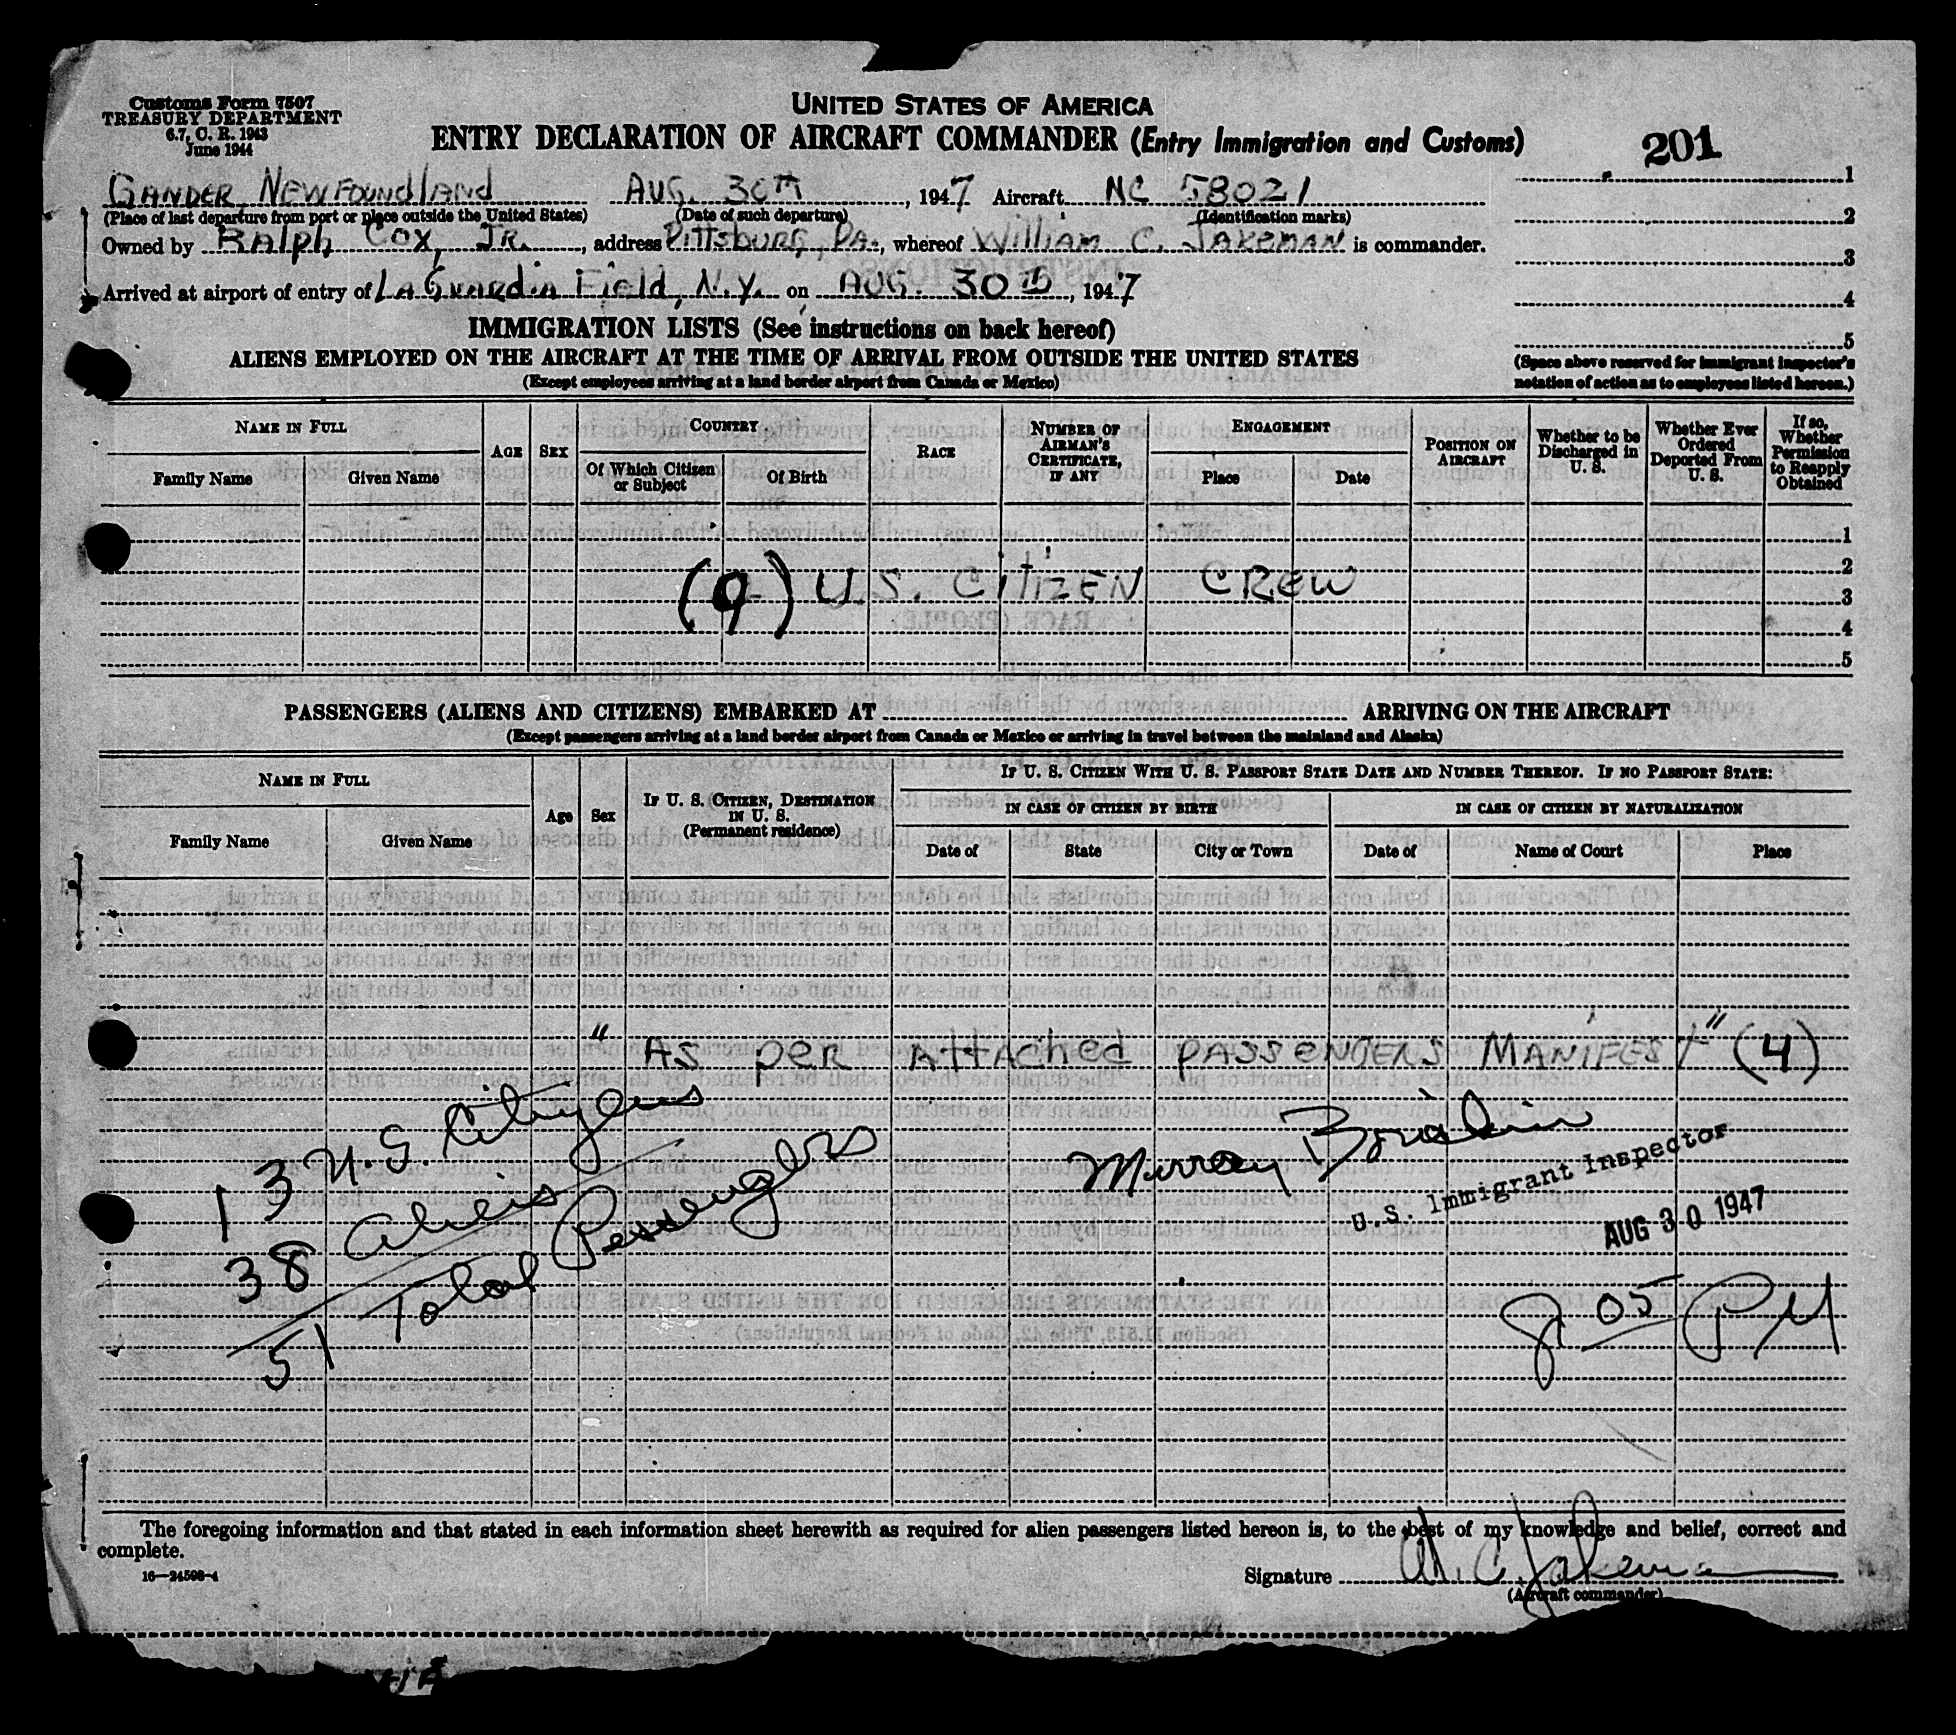 Customs Form 7507
TREASURY DEPARTMENT
6.7, C. R. 1943
June 1944
UNITED STATES OF AMERICA
ENTRY DECLARATION OF AIRCRAFT COMMANDER (Entry Immigration and Customs)
201
GANDER, NEWFOUNDLAND AUG. 30TH, 1947 Aircraft NC 58021
(Place of last departure from port or place outside the United States) (Date of such departure) (Identification marks)
Owned by RALPH COX, JR., address PITTSBURG, PA., whereof WILLIAM C. JAKEMAN is commander.
Arrived at airport of entry of LAGUARDIA FIELD, N.Y. on AUG. 30th, 1947
1
2
3
4
5
(Space above reserved for immigrant inspector's
notation of action as to employees listed hereon.)
IMMIGRATION LISTS (See instructions on back hereof)
ALIENS EMPLOYED ON THE AIRCRAFT AT THE TIME OF ARRIVAL FROM OUTSIDE THE UNITED STATES
(Except employees arriving at a land border airport from Canada or Mexico)
NAME IN FULL
Family Name
Given Name
AGE
SEX
COUNTRY
Of Which Citizen
or Subject
Of Birth
RACE
NUMBER OF
AIRMAN'S
CERTIFICATE,
IF ANY
ENGAGEMENT
Place
Date
POSITION ON
AIRCRAFT
Whether to be
Discharged in
U. S.
Whether Ever
Ordered
Deported From
U. S.
If so,
Whether
Permission
to Reapply
Obtained
1
2
3
4
5
(9) U.S. CITIZEN CREW
PASSENGERS (ALIENS AND CITIZENS) EMBARKED AT ARRIVING ON THE AIRCRAFT
(Except passengers arriving at a land border airport from Canada or Mexico or arriving in travel between the mainland and Alaska)
NAME IN FULL
Family Name
Given Name
Age
Sex
IF U. S. CITIZEN, DESTINATION
IN U. S.
(Permanent residence)
IF U. S. CITIZEN WITH U. S. PASSPORT STATE DATE AND NUMBER THEREOF. IF NO PASSPORT STATE:
IN CASE OF CITIZEN BY BIRTH
IN CASE OF CITIZEN BY NATURALIZATION
Date of
State
City or Town
Date of
Name of Court
Place
"AS PER ATTACHED PASSENGERS MANIFEST" (4)
13 U.S. Citizens
38 Aliens
51 Total Passengers
Murray
U.S. Immigrant Inspector
AUG 30 1947
8 05 PM
The foregoing information and that stated in each information sheet herewith as required for alien passengers listed hereon is, to the best of my knowledge and belief, correct and
complete.
16—24598-4
Signature W. C. Jakeman
(Aircraft commander)